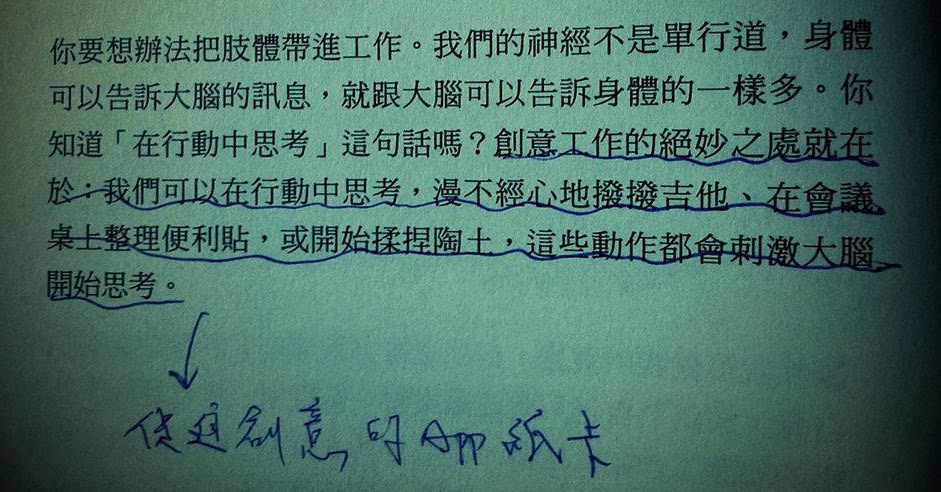 你要想辦法把肢體帶進工作。我們的神經不是單行道，身體
可以告訴大腦的訊息，就跟大腦可以告訴身體的一樣多。你
知道「在行動中思考」這句話嗎？創意工作的絕妙之處就在
於：我們可以在行動中思考，漫不經心地撥撥吉他、在會議
桌上整理便利貼，或開始揉捏陶土，這些動作都會刺激大腦
開始思考。
創意的App紙卡